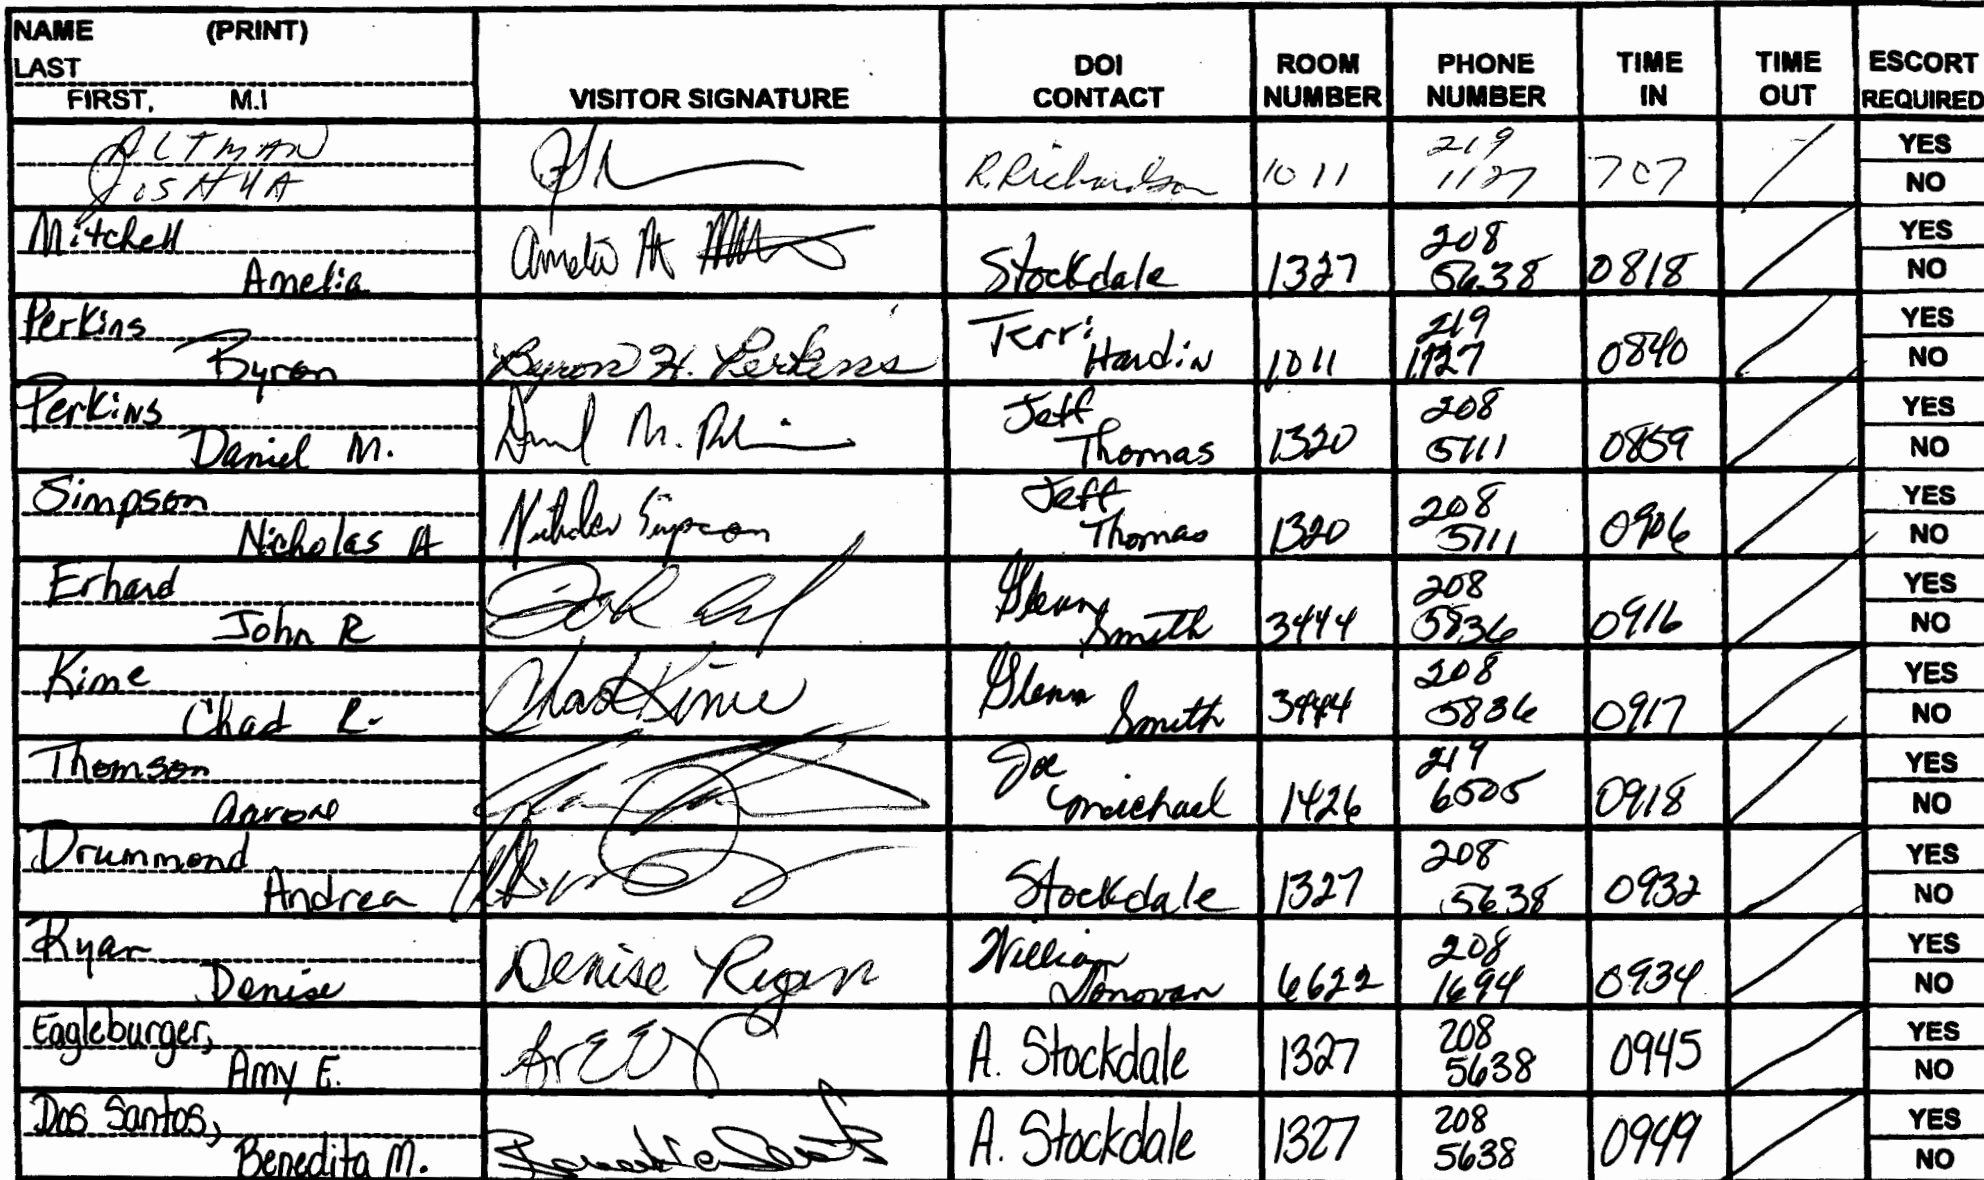 NAME (PRINT)
LAST
FIRST, M.I
VISITOR SIGNATURE
DOI CONTACT
ROOM NUMBER
PHONE NUMBER
TIME IN
TIME OUT
ESCORT REQUIRED
ALTMAN
JOSHUA
R. Richardson
1011
219
1127
707
YES
NO
Mitchell
Amelia
Amelia
Stockdale
1327
208
5638
0818
YES
NO
Perkins
Byron
Byron H. Perkins
Terri
Hardin
1011
219
1127
0840
YES
NO
Perkins
Daniel M.
Jeff
Thomas
1320
208
5111
0859
YES
NO
Simpson
Nicholas A
Nicholas Simpson
Jeff
Thomas
1320
208
5111
0906
YES
NO
Erhard
John R
Glenn
Smith
3444
208
5836
0916
YES
NO
Kime
Chad R.
Chad Kime
Glenn
Smith
3444
208
5836
0917
YES
NO
Thomson
Joe
michael
1426
219
6505
0918
YES
NO
Drummond
Andrea
Stockdale
1327
208
5638
0932
YES
NO
Ryan
Denise
Denise Ryan
William
Donovan
6622
208
1694
0934
YES
NO
Eagleburger,
Amy E.
A. Stockdale
1327
208
5638
0945
YES
NO
Dos Santos,
Benedita M.
A. Stockdale
1327
208
5638
0949
YES
NO